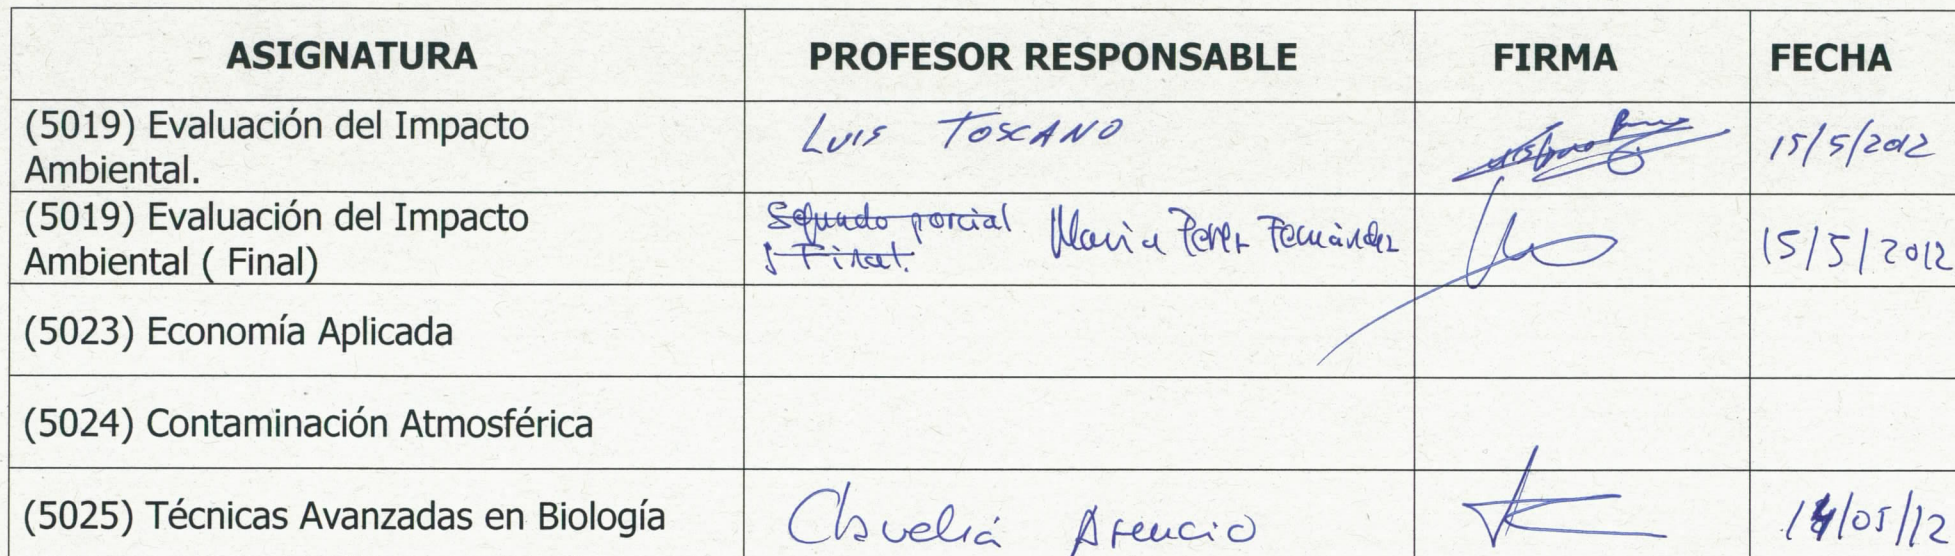 ASIGNATURA PROFESOR RESPONSABLE FIRMA FECHA
(5019) Evaluación del Impacto
Ambiental. LUIS TOSCANO 15/5/2012
(5019) Evaluación del Impacto
Ambiental ( Final) Segundo parcial
y Final. Maria Perez Fernández 15/5/2012
(5023) Economía Aplicada
(5024) Contaminación Atmosférica
(5025) Técnicas Avanzadas en Biología Asencio 14/05/12